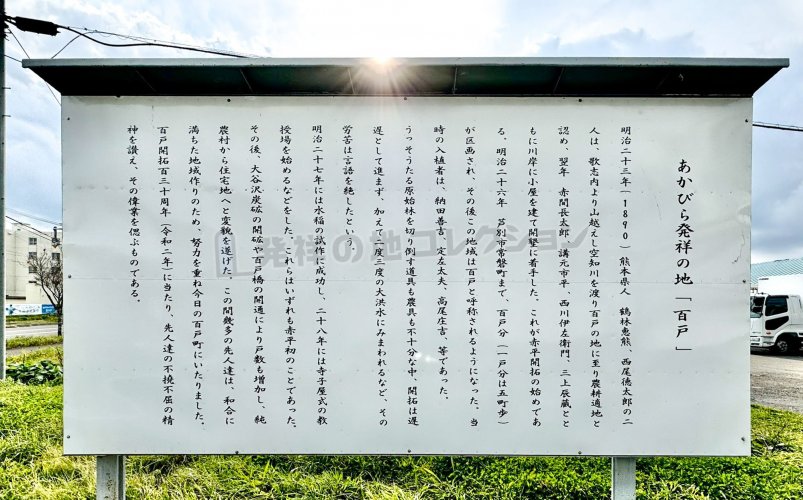 あかびら発祥の地「百戸」
明治二十三年（1890）熊本県人 鶴林惠熊、西尾德太郎の二
人は、歌志内より山越えし空知川を渡り百戸の地に至り農耕適地と
認め、翌年 赤間長太郎、講元市平、西川伊左衛門、三上辰蔵とと
もに川岸に小屋を建て開墾に着手した。これが赤平開拓の始めであ
る。明治二十六年 芦別市常磐町まで、百戸分（一戸分は五町歩）
が区画され、その後この地域は百戸と呼称されるようになった。当
時の入植者は、納田善吉、定左太夫、高尾庄吉、等であった。
うっそうたる原始林を切り倒す道具も農具も不十分な中、開拓は遅
遅として進まず、加えて二度三度の大洪水にみまわれるなど、その
労苦は言語を絶したという。
明治二十七年には水稲の試作に成功し、二十八年には寺子屋式の教
授場を始めるなどをした。これらはいずれも赤平初のことであった。
その後、大谷沢炭砿の開砿や百戸橋の開通により戸数も増加し、純
農村から住宅地へと変貌を遂げた。この間幾多の先人達は、和合に
満ちた地域作りのため、努力を重ね今日の百戸町にいたりました。
百戸開拓百三十周年（令和二年）に当たり、先人達の不撓不屈の精
神を讃え、その偉業を偲ぶものである。
発祥の地コレクション